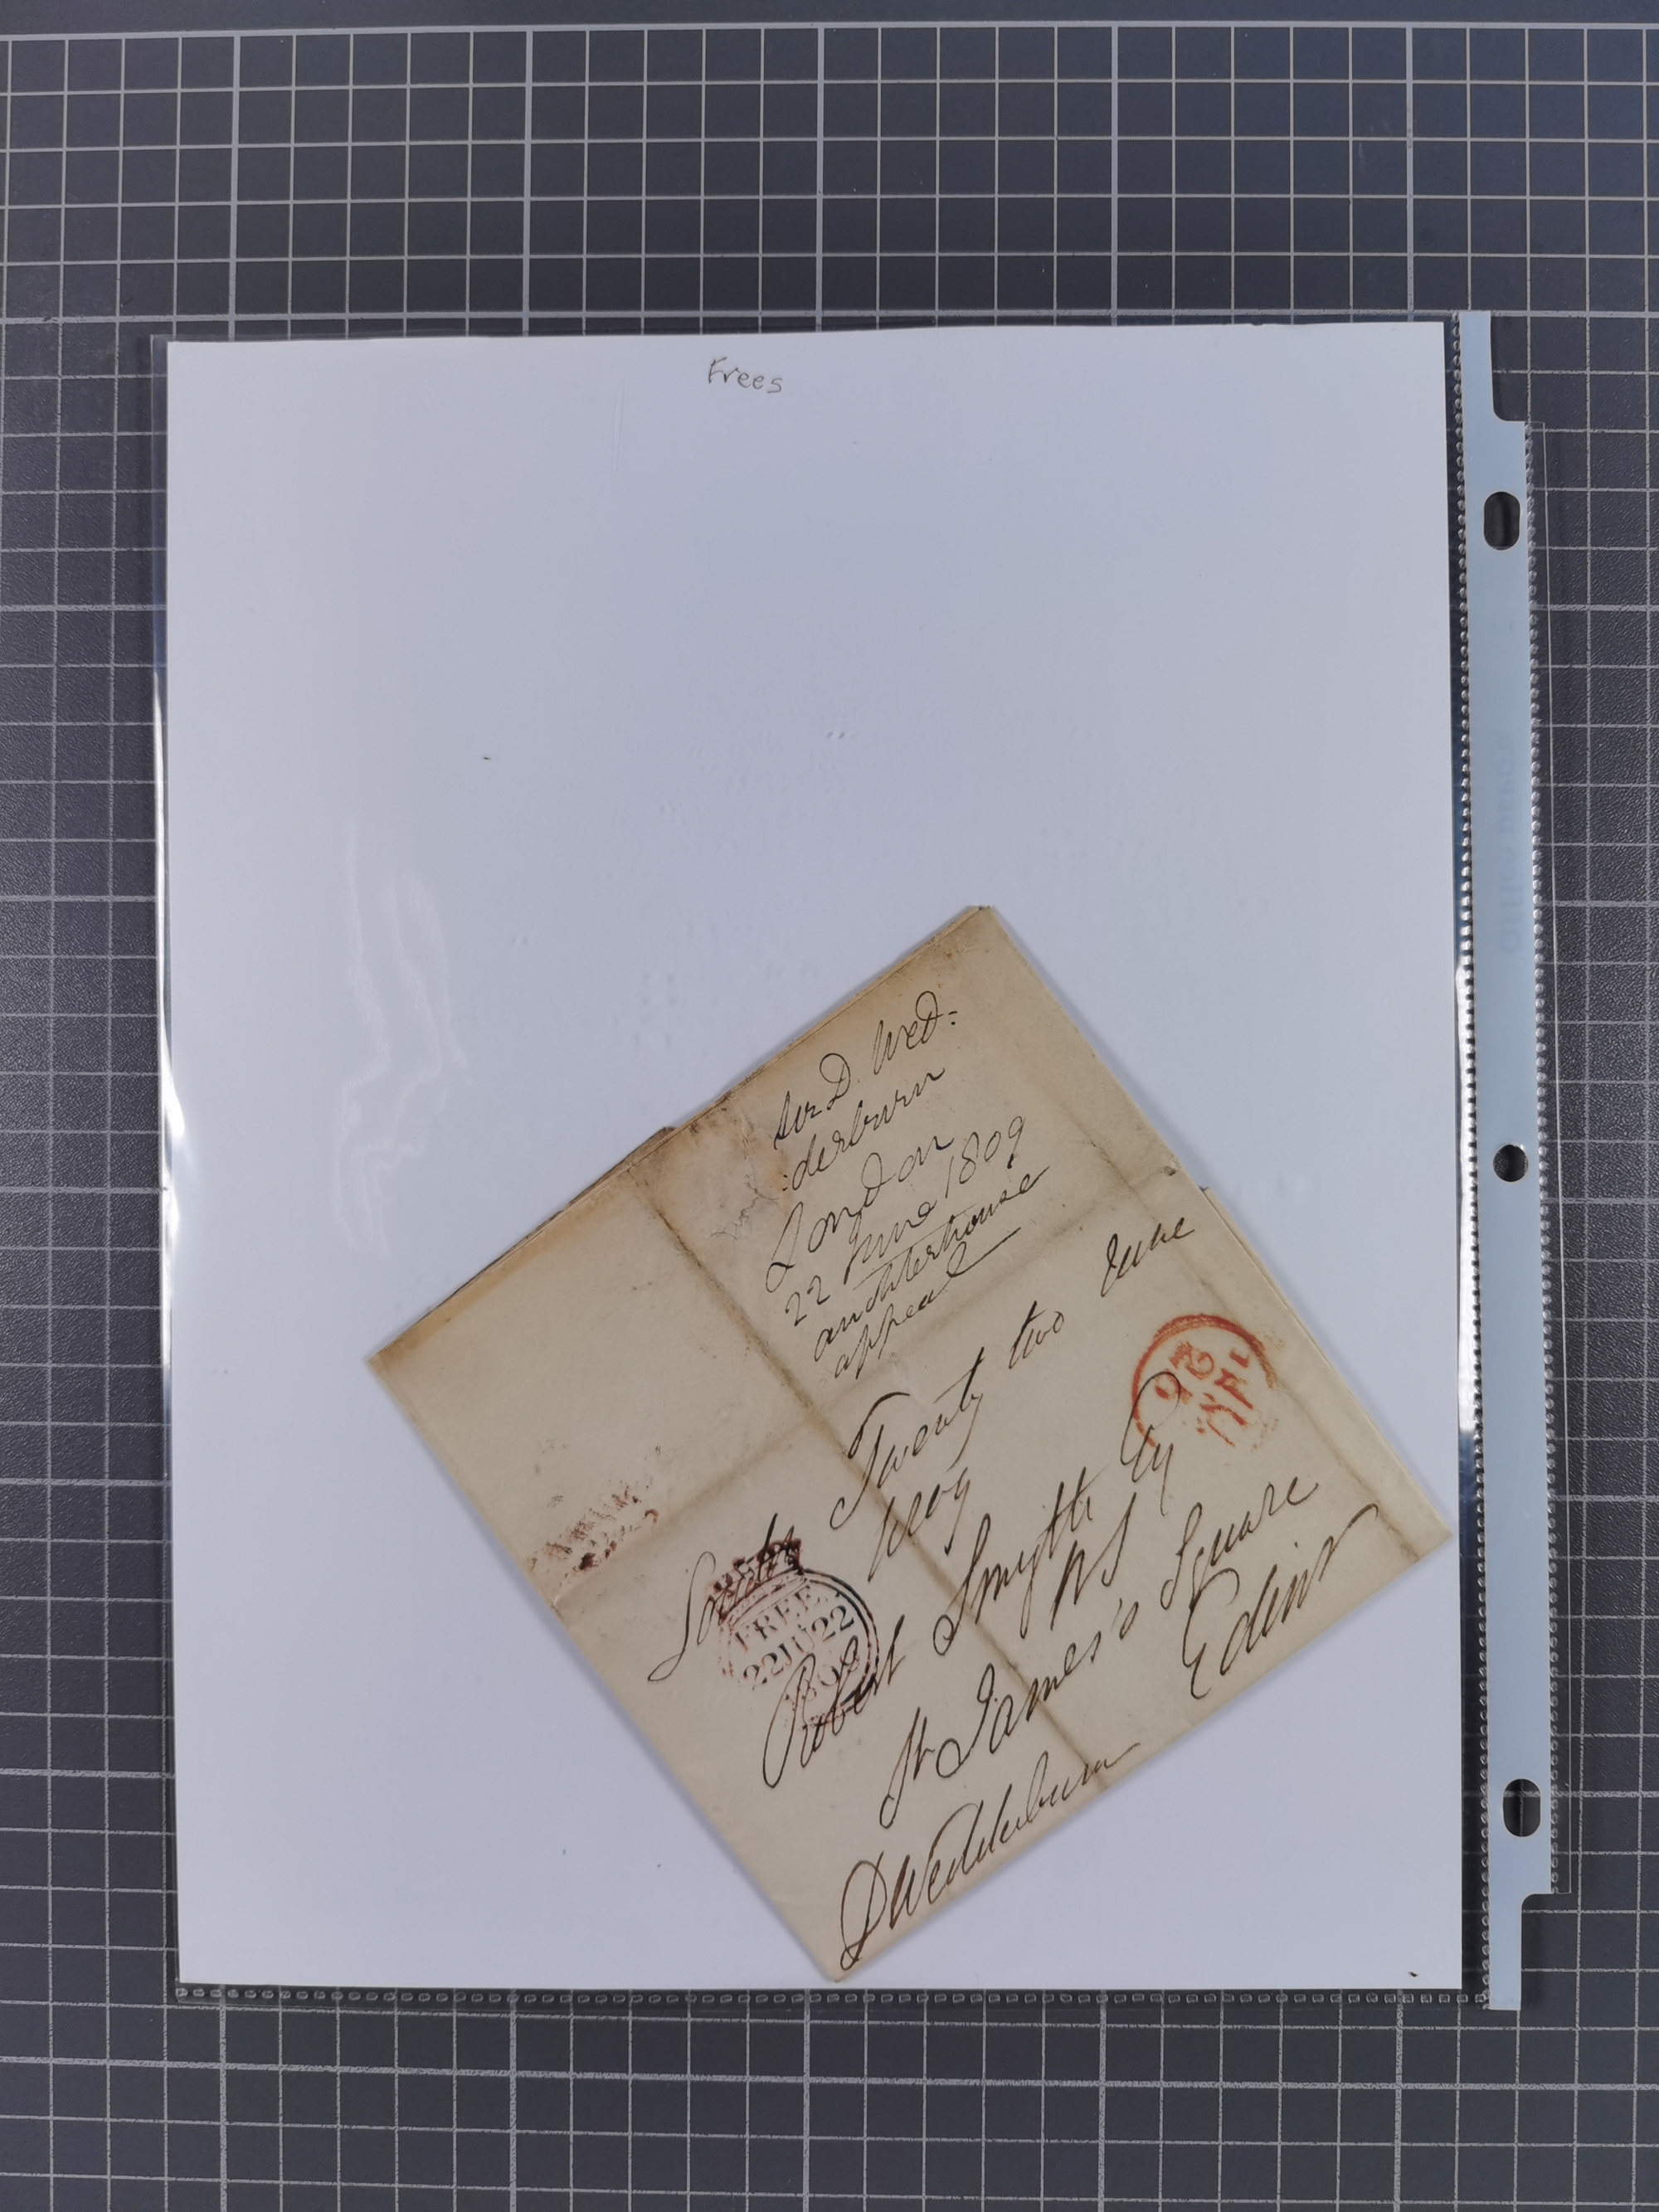 Frees
Sir D. Wed=
:derburn
London
22 June 1809
auchterhouse
appeal
London Twenty two June
1809
Robert Smythe Esq
WS
St James's Square
Edinr
DWedderburn
FREE
22 JU 22
1809
JUN
26